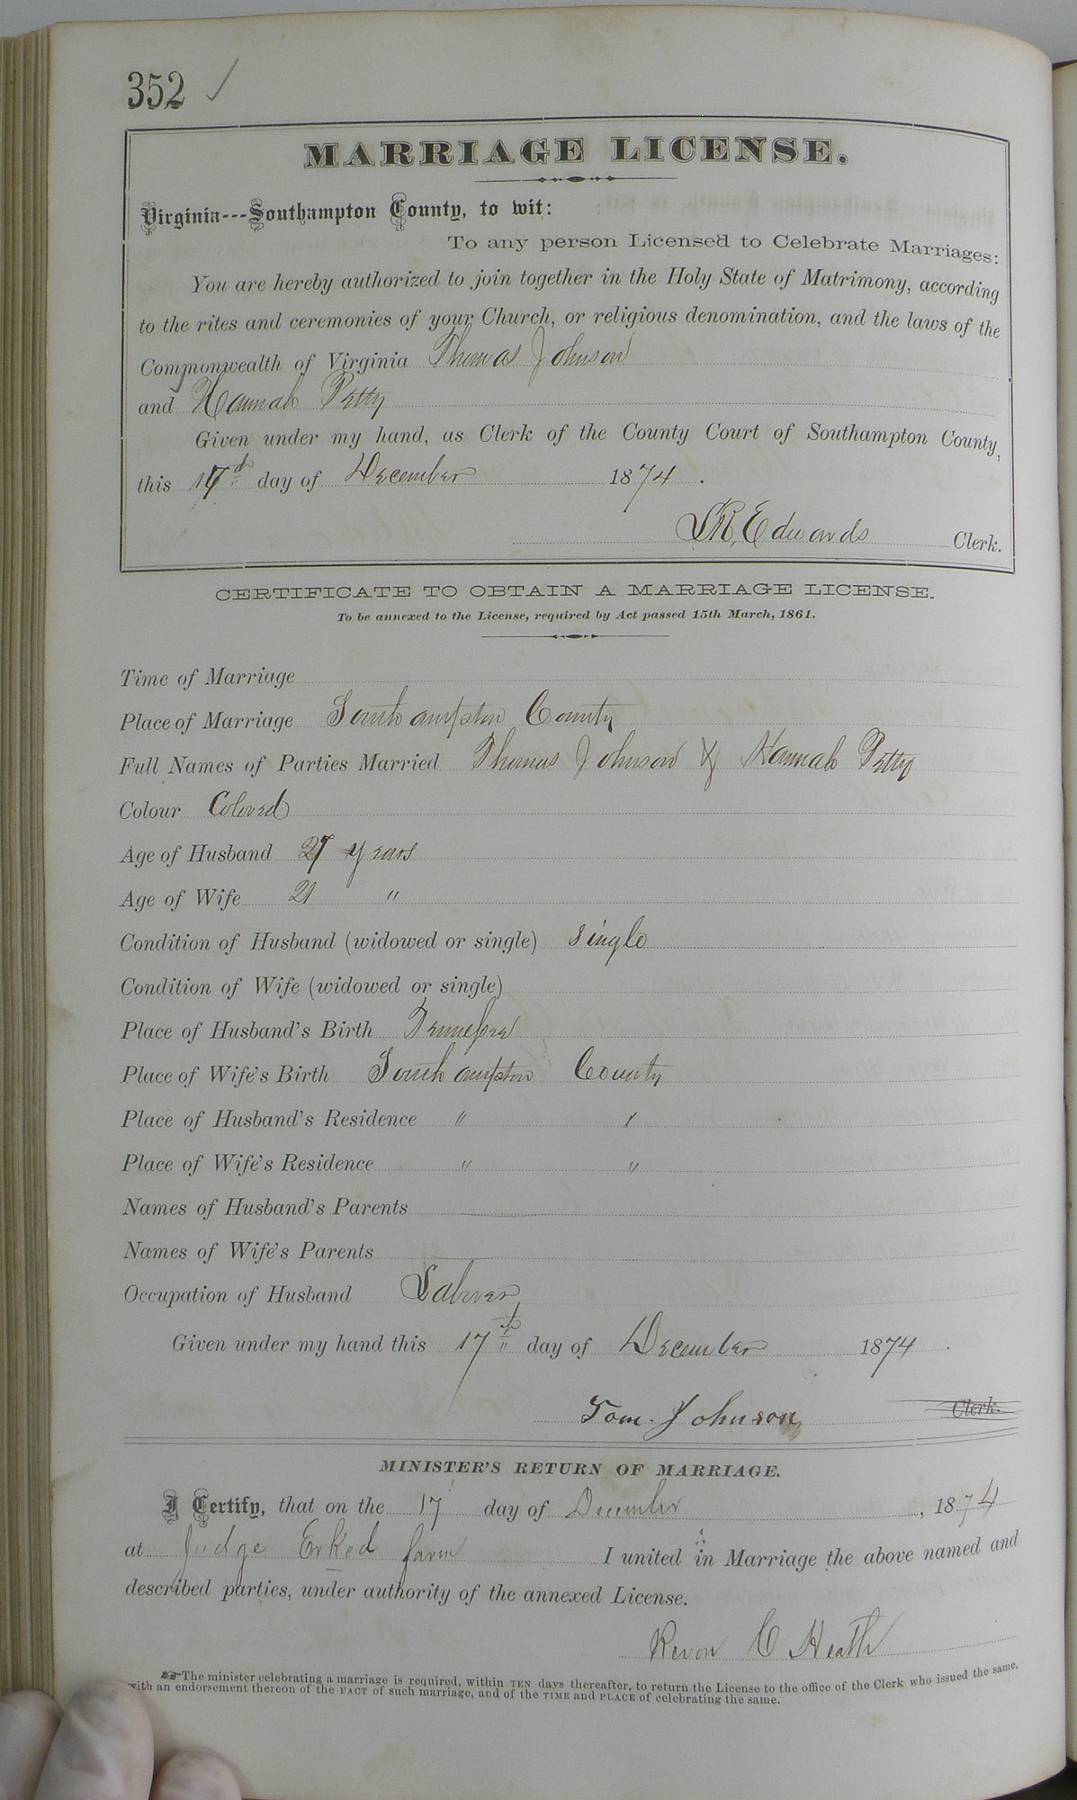 352 ✓
MARRIAGE LICENSE.
Virginia---Southampton County, to wit:
To any person Licensed to Celebrate Marriages:
You are hereby authorized to join together in the Holy State of Matrimony, according
to the rites and ceremonies of your Church, or religious denomination, and the laws of the
Commonwealth of Virginia Thomas Johnson
and Hannah Petty
Given under my hand, as Clerk of the County Court of Southampton County,
this 17th day of December 1874.
L R, Edwards Clerk.
CERTIFICATE TO OBTAIN A MARRIAGE LICENSE.
To be annexed to the License, required by Act passed 15th March, 1861.
Time of Marriage
Place of Marriage Southampton County
Full Names of Parties Married Thomas Johnson & Hannah Petty
Colour Colored
Age of Husband 27 years
Age of Wife 21 "
Condition of Husband (widowed or single) single
Condition of Wife (widowed or single)
Place of Husband's Birth
Place of Wife's Birth Southampton County
Place of Husband's Residence " "
Place of Wife's Residence " "
Names of Husband's Parents
Names of Wife's Parents
Occupation of Husband Laborer
Given under my hand this 17th day of December 1874.
Tom. Johnson Clerk.
MINISTER'S RETURN OF MARRIAGE.
I Certify, that on the 17 day of December, 1874
at Judge farm I united in Marriage the above named and
described parties, under authority of the annexed License.
C Heath
The minister celebrating a marriage is required, within TEN days thereafter, to return the License to the office of the Clerk who issued the same,
with an endorsement thereon of the FACT of such marriage, and of the TIME and PLACE of celebrating the same.